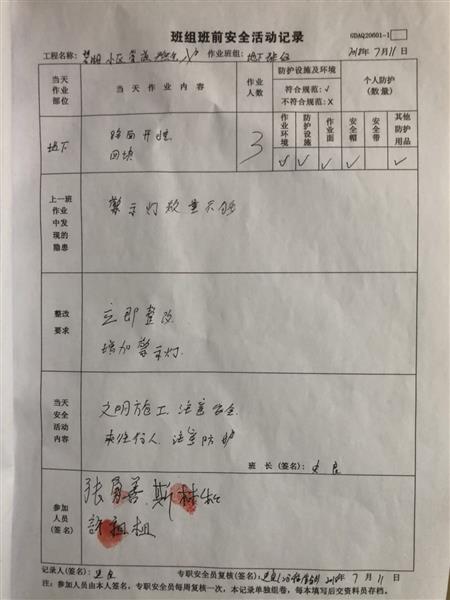 班组班前安全活动记录
GDAQ20601-1
工程名称: 小区 作业班组: 地下 2018年7月11日
当天作业部位
当天作业内容
作业人数
防护设施及环境
符合规范:√
不符合规范:X
个人防护(数量)
作业环境
防护设施
作业面
安全帽
安全带
其他防护用品
地下
路面开挖
回填
3
√ √ √ √ √
上一班作业中发现的隐患
警示灯数量不够
整改要求
立即整改
增加警示灯
当天安全活动内容
文明施工 注意安全
来往行人 注意防护
班 长(签名):史良
参加人员(签名)
张勇善 斯
许祖祖
记录人(签名): 专职安全员复核(签名): 2018年7月11日
注:参加人员由本人签名,专职安全员每周复核一次,本记录单独组卷,每本填写后交资料员存档。